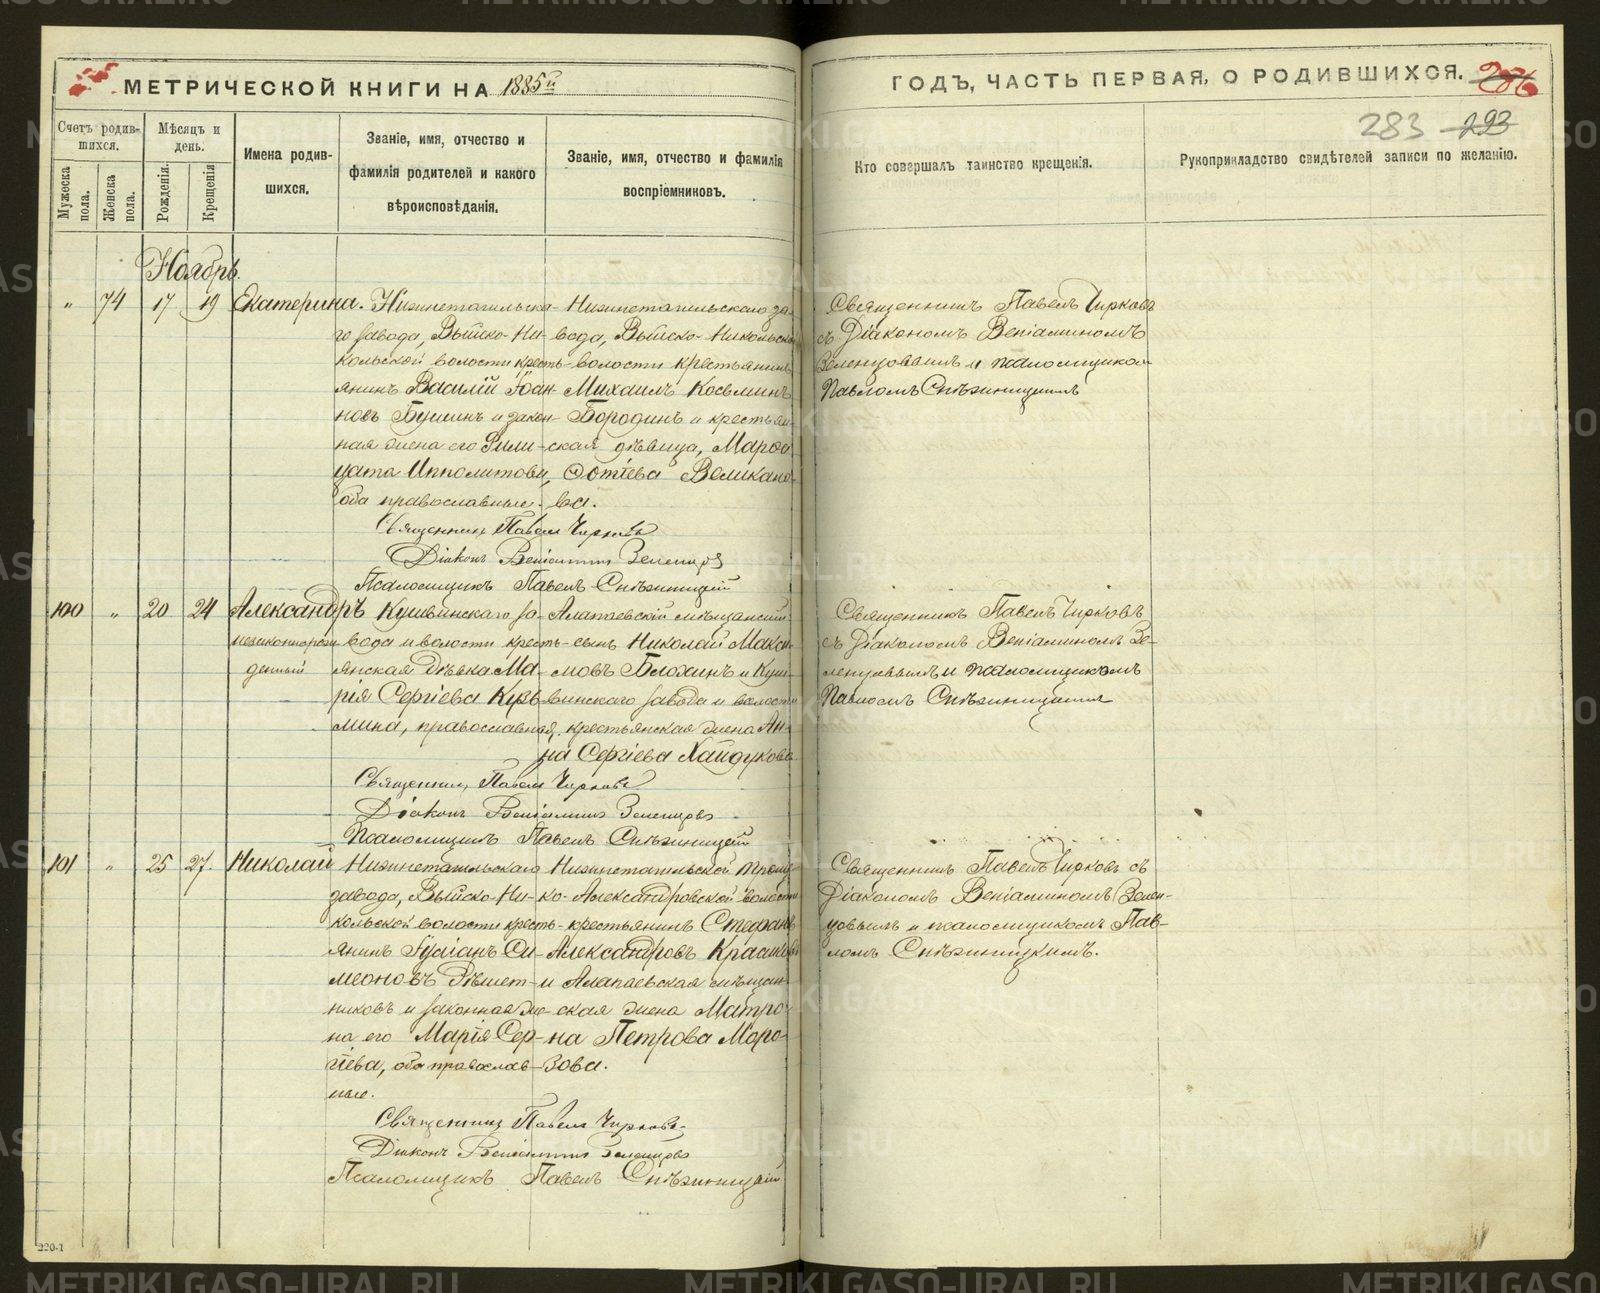 МЕТРИЧЕСКОЙ КНИГИ НА 1885й
ГОДЪ, ЧАСТЬ ПЕРВАЯ, О РОДИВШИХСЯ. 286
283 293
Счетъ родив-
шихся.
Мужеска пола.
Женска пола.
Мѣсяцъ и день.
Рожденія.
Крещенія
Имена родив-
шихся.
Званіе, имя, отчество и
фамилія родителей и какого
вѣроисповѣданія.
Званіе, имя, отчество и фамилія
воспріемниковъ.
Кто совершалъ таинство крещенія.
Рукоприкладство свидѣтелей записи по желанію.
Ноябрь.
" 74 17 19 Екатерина.
Нижнетагильска-
го завода, Выйско-Ни-
кольской волости кресть-
янинъ Василій Іоан
новъ Бушинъ и закон-
ная жена его Фили-
цата Ипполитова,
оба православные.
Нижнетагильскаго за-
вода, Выйско-Никольской
волости крестьянинъ
Михаилъ Козьминъ
Бородинъ и крестьян-
ская дѣвица, Марѳа
Фотіева Великано-
ва.
Священникъ Павелъ Чирковъ
съ Діакономъ Веніаминомъ
Зеленцовымъ и псаломщикомъ
Павломъ Снѣжницкимъ
Священникъ Павелъ Чирковъ
Діаконъ Веніаминъ Зеленцовъ
Псаломщикъ Павелъ Снѣжницкій
100 " 20 24 Александръ
незаконнорож
денный
Кушвинскаго за-
вода и волости кресть-
янская дѣвка Ма-
рія Сергіева Кузь-
мина, православная,
Алапаевскій мѣщанскій
сынъ Николай Макси-
мовъ Блохинъ и Куш-
винскаго завода и волости
крестьянская жена Ан-
на Сергіева Хайдукова
Священникъ Павелъ Чирковъ
съ Діакономъ Веніаминомъ Зе-
ленцовымъ и псаломщикомъ
Павломъ Снѣжницкимъ
Священникъ Павелъ Чирковъ
Діаконъ Веніаминъ Зеленцовъ
Псаломщикъ Павелъ Снѣжницкій
101 " 25 27. Николай
Нижнетагильскаго
завода, Выйско-Ни-
кольской волости кресть-
янинъ Іуліанъ Си-
меоновъ Рѣшет-
никовъ и законная же-
на его Марія Сер-
гіева, оба православ-
ные.
Нижнетагильской Трои-
ко-Александровской волости
крестьянинъ Стефанъ
Александровъ Красиковъ
и Алапаевская мѣщан-
ская жена Матро-
на Петрова Моро-
зова.
Священникъ Павелъ Чирковъ съ
Діакономъ Веніаминомъ Зелен-
цовымъ и псаломщикомъ Пав-
ломъ Снѣжницкимъ.
Священникъ Павелъ Чирковъ
Діаконъ Веніаминъ Зеленцовъ
Псаломщикъ Павелъ Снѣжницкій
220-1
METRIKI.GASO-URAL.RU